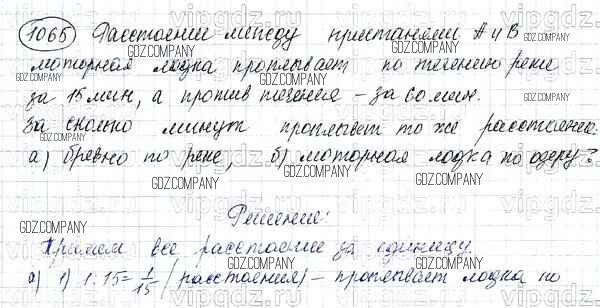 1065 Расстояние между пристанями А и В
моторная лодка проплывает по течению реки
за 15 мин, а против течения – за 60 мин.
За сколько минут проплывет то же расстояние:
а) бревно по реке, б) моторная лодка по озеру?
Решение:
Примем все расстояние за единицу.
а) 1) 1:15=1/15 (расстояния) – проплывает лодка по